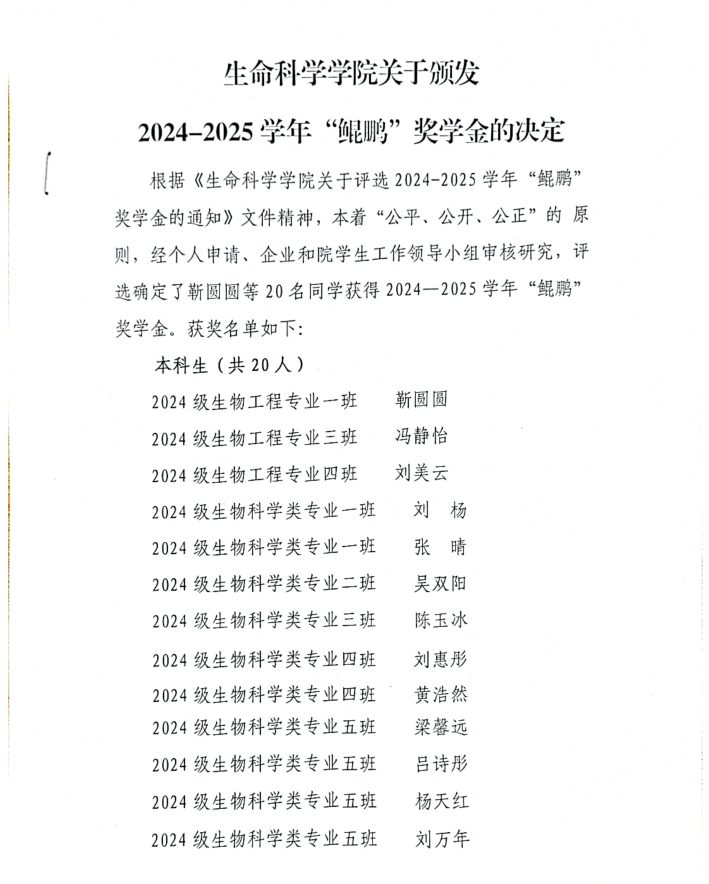 生命科学学院关于颁发
2024-2025 学年“鲲鹏”奖学金的决定
根据《生命科学学院关于评选 2024-2025 学年“鲲鹏”
奖学金的通知》文件精神，本着“公平、公开、公正”的 原
则，经个人申请、企业和院学生工作领导小组审核研究，评
选确定了靳圆圆等 20 名同学获得 2024—2025 学年“鲲鹏”
奖学金。获奖名单如下：
本科生（共 20 人）
2024 级生物工程专业一班 靳圆圆
2024 级生物工程专业三班 冯静怡
2024 级生物工程专业四班 刘美云
2024 级生物科学类专业一班 刘 杨
2024 级生物科学类专业一班 张 晴
2024 级生物科学类专业二班 吴双阳
2024 级生物科学类专业三班 陈玉冰
2024 级生物科学类专业四班 刘惠彤
2024 级生物科学类专业四班 黄浩然
2024 级生物科学类专业五班 梁馨远
2024 级生物科学类专业五班 吕诗彤
2024 级生物科学类专业五班 杨天红
2024 级生物科学类专业五班 刘万年